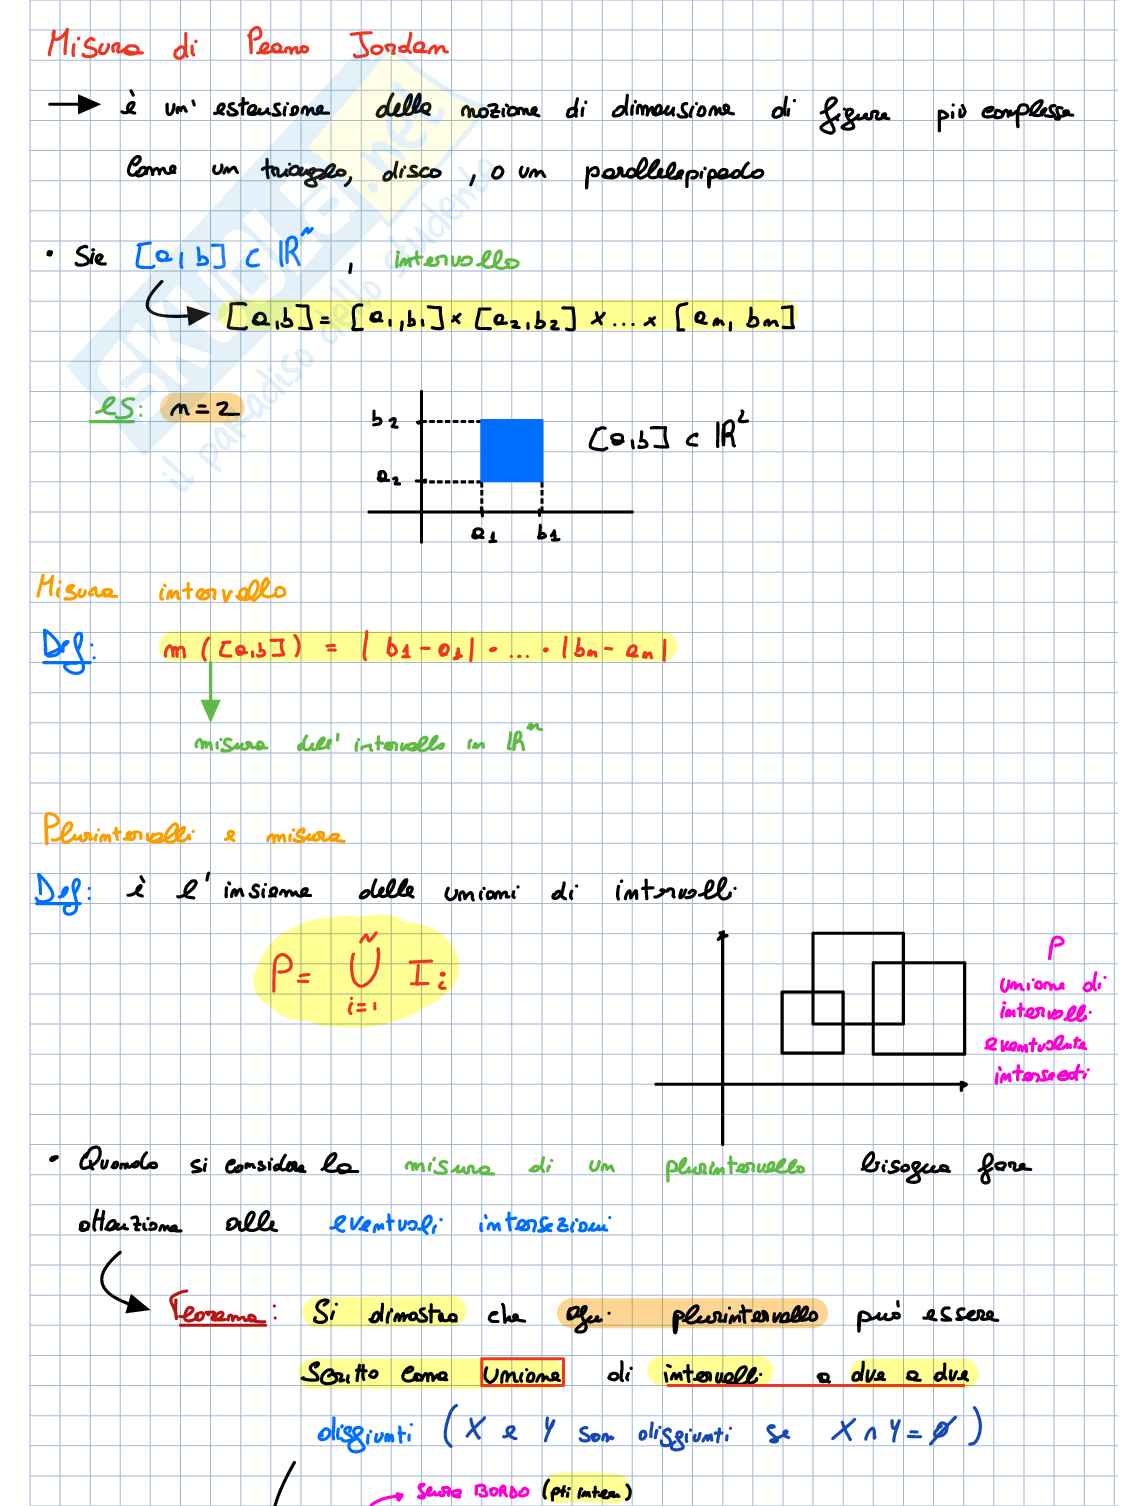 Misura di Peano Jordan
→ è un' estensione della nozione di dimensione di figure più complesse
come un triangolo, disco, o un parallelepipedo
• Sia [a,b] ⊂ ℝⁿ, intervallo
[a,b] = [a₁,b₁] × [a₂,b₂] × ... × [aₙ, bₙ]
es: n=2
b₂
[a,b] ⊂ ℝ²
a₂
a₁ b₁
Misura intervallo
Def: m([a,b]) = |b₁-a₁| · ... · |bₙ-aₙ|
misura dell' intervallo in ℝⁿ
Plurintervalli e misura
Def: è l'insieme delle unioni di intervalli
P = ⋃ⁿᵢ₌₁ Iᵢ
P
unione di
intervalli
eventualnte
intersecati
• Quando si considera la misura di un plurintervallo bisogna fare
attenzione alle eventuali intersezioni
Teorema: Si dimostra che ogni plurintervallo può essere
scritto come unione di intervalli a due a due
disgiunti (X e Y son disgiunti se X∩Y=∅)
senza BORDO (pti interni)
SKUOLA.net
il paradiso dello studente